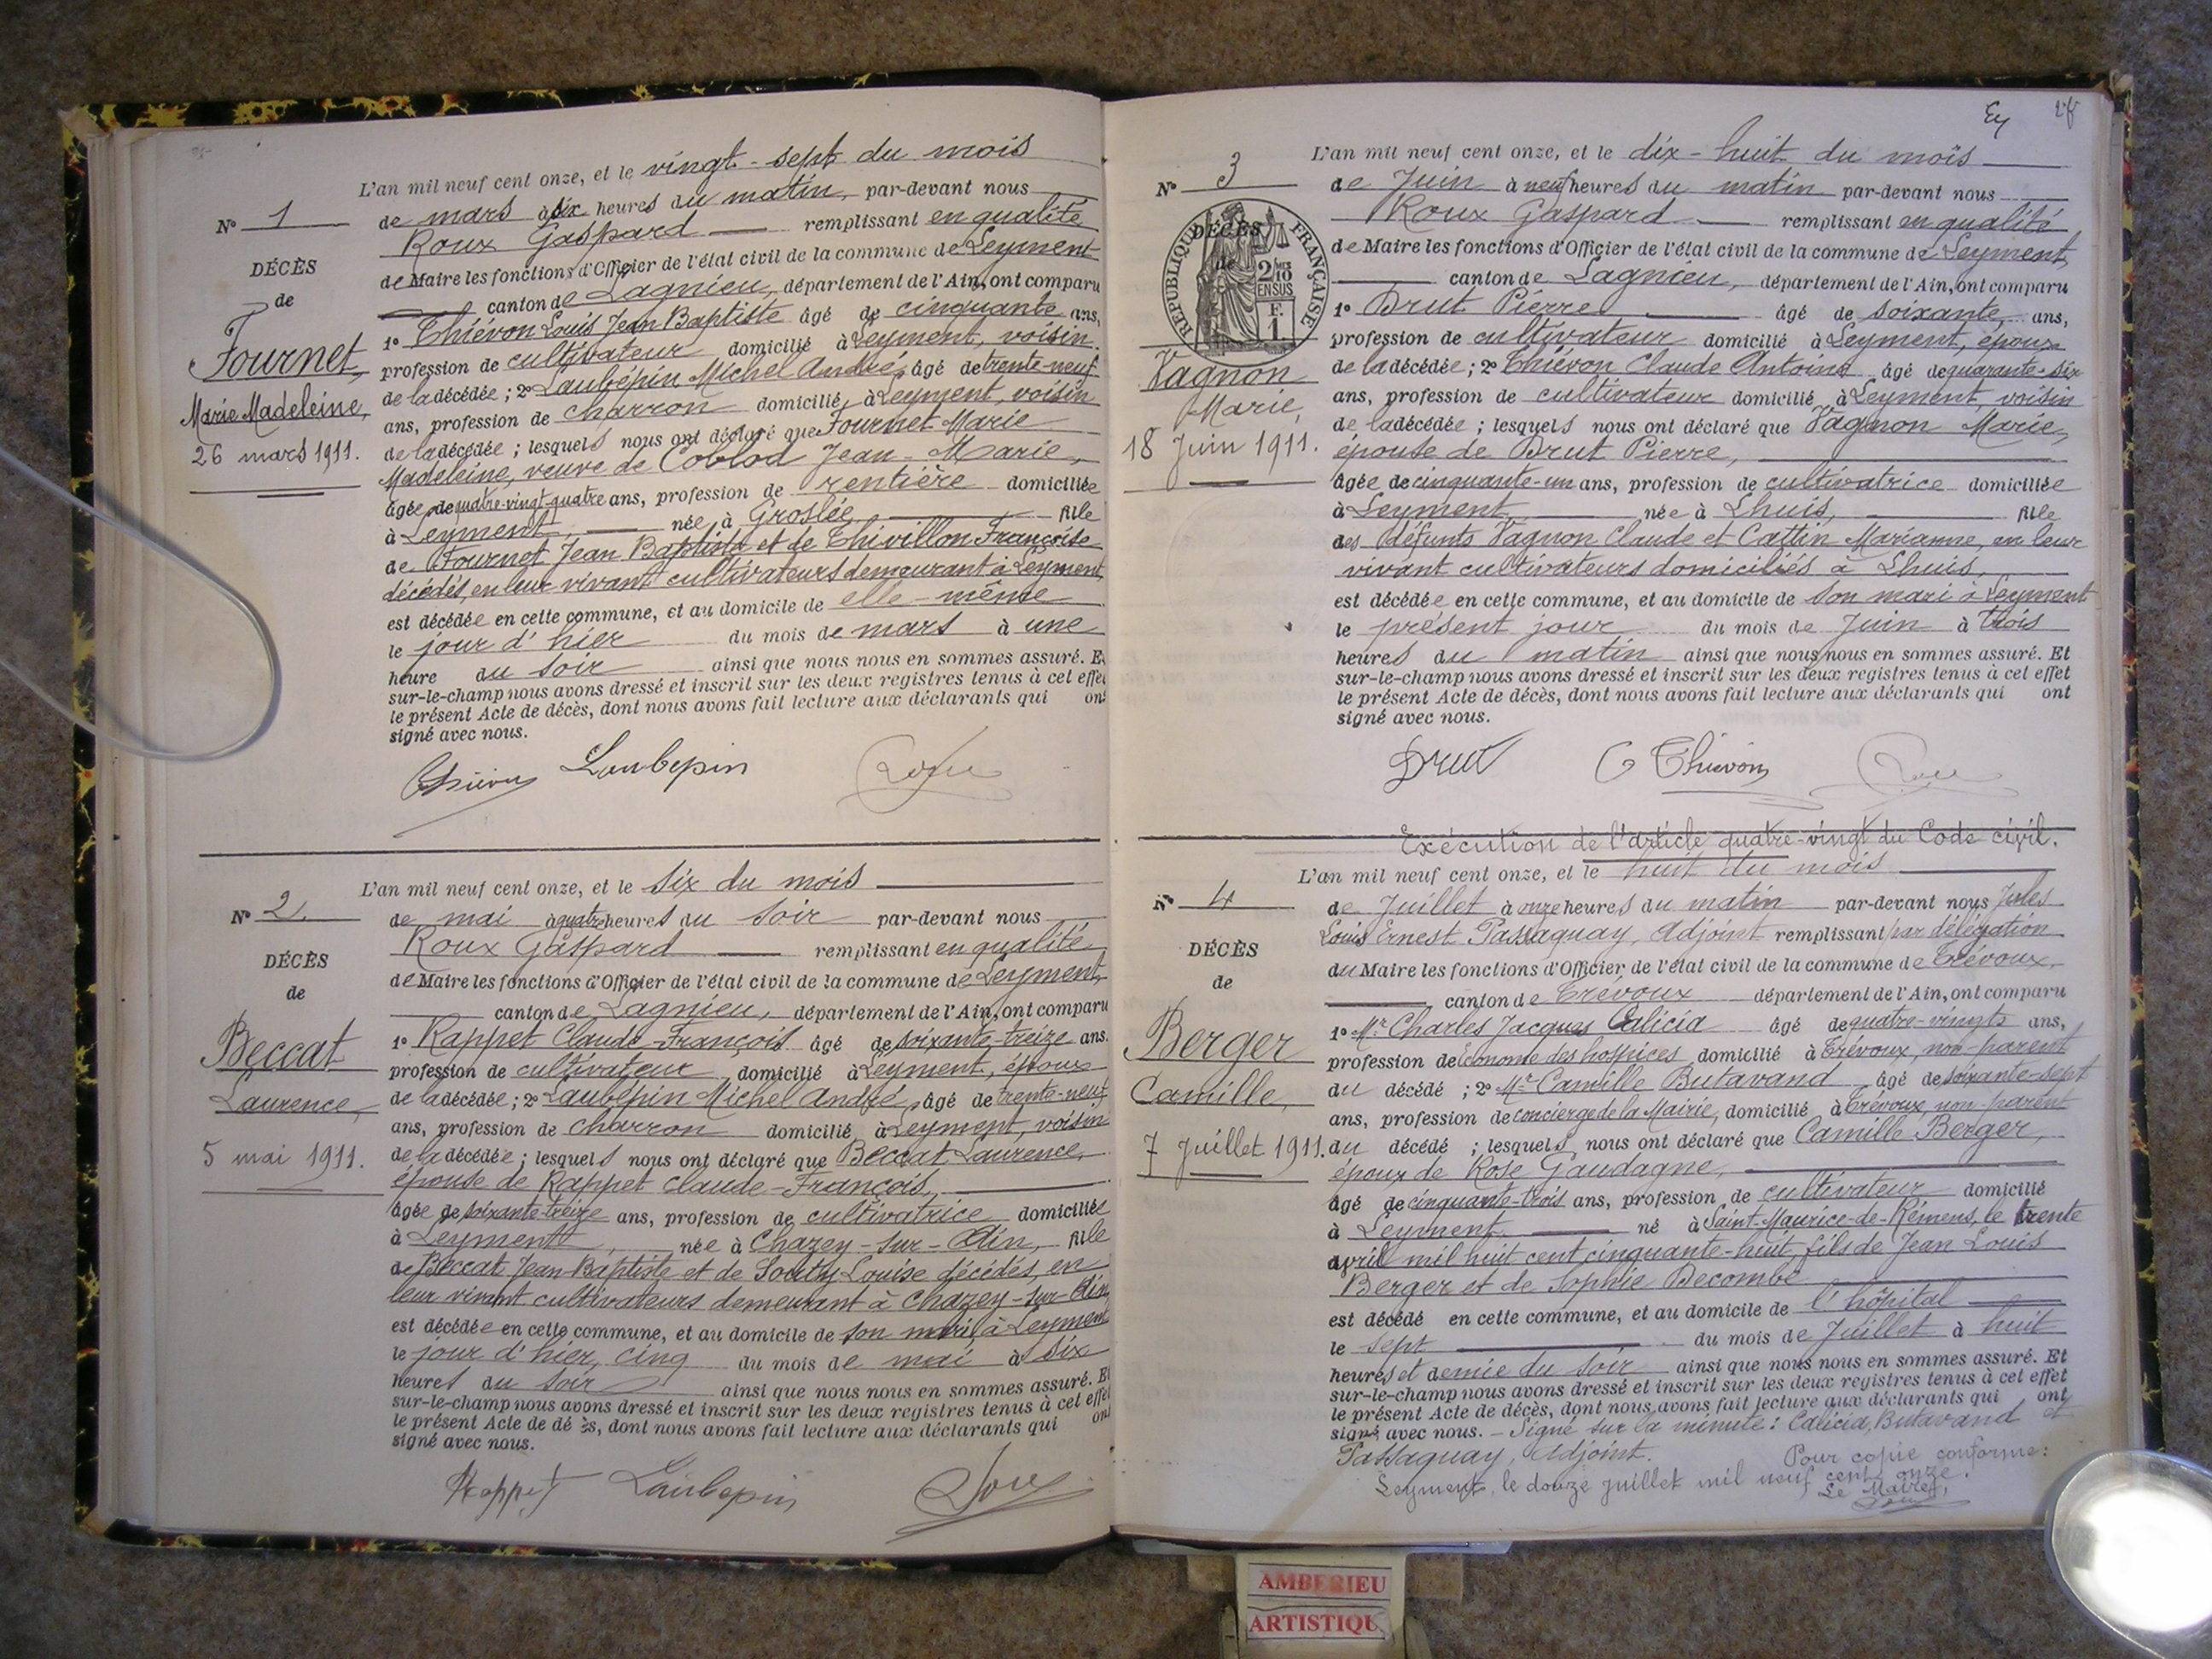 L'an mil neuf cent onze, et le vingt-sept du mois
de mars à six heures du matin, par-devant nous
Roux Gaspard remplissant en qualité
de Maire les fonctions d'Officier de l'état civil de la commune de Leyment
canton de Lagnieu, département de l'Ain, ont comparu
1° Thiévon Louis Jean Baptiste âgé de cinquante ans,
profession de cultivateur domicilié à Leyment, voisin
de la décédée; 2° Laubépin Michel André, âgé de trente-neuf
ans, profession de charron domicilié, à Leyment, voisin
de la décédée; lesquels nous ont déclaré que Fournet Marie
Madeleine, veuve de Coblod Jean-Marie,
âgée de quatre-vingt-quatre ans, profession de rentière domiciliée
à Leyment, née à Groslée, fille
de Fournet Jean Baptiste et de Thivillon Françoise
décédés, en leur vivant cultivateurs demeurant à Leyment,
est décédée en cette commune, et au domicile de elle-même
le jour d'hier du mois de mars à une
heure du soir ainsi que nous nous en sommes assuré. Et
sur-le-champ nous avons dressé et inscrit sur les deux registres tenus à cet effet
le présent Acte de décès, dont nous avons fait lecture aux déclarants qui ont
signé avec nous.
N° 1
DÉCÈS
de
Fournet,
Marie Madeleine,
26 mars 1911.
Thiévon Laubepin Roux
L'an mil neuf cent onze, et le six du mois
de mai à quatre heures du soir par-devant nous
Roux Gaspard remplissant en qualité
de Maire les fonctions d'Officier de l'état civil de la commune de Leyment,
canton de Lagnieu, département de l'Ain, ont comparu
1° Rappet Claude-François âgé de soixante-treize ans.
profession de cultivateur domicilié à Leyment, époux
de la décédée; 2° Laubépin Michel André, âgé de trente-neuf
ans, profession de charron domicilié, à Leyment, voisin
de la décédée; lesquels nous ont déclaré que Beccat Laurence,
épouse de Rappet Claude-François,
âgée de soixante-treize ans, profession de cultivatrice domiciliée
à Leyment, née à Chazey-sur-Ain, fille
de Beccat Jean-Baptiste et de Louise décédés, en
leur vivant cultivateurs demeurant à Chazey-sur-Ain
est décédée en cette commune, et au domicile de son mari, à Leyment
le jour d'hier, cinq du mois de mai à six
heures du soir ainsi que nous nous en sommes assuré. Et
sur-le-champ nous avons dressé et inscrit sur les deux registres tenus à cet effet
le présent Acte de dé ès, dont nous avons fait lecture aux déclarants qui ont
signé avec nous.
N° 2
DÉCÈS
de
Beccat
Laurence,
5 mai 1911.
Rappet Laubepin Roux
L'an mil neuf cent onze, et le dix-huit du mois
de Juin à neuf heures du matin par-devant nous
Roux Gaspard remplissant en qualité
de Maire les fonctions d'Officier de l'état civil de la commune de Leyment,
canton de Lagnieu, département de l'Ain, ont comparu
1° Drut Pierre âgé de soixante, ans,
profession de cultivateur domicilié à Leyment, époux
de la décédée; 2° Thiévon Claude Antoine âgé de quarante-six
ans, profession de cultivateur domicilié à Leyment, voisin
de la décédée; lesquels nous ont déclaré que Vagnon Marie,
épouse de Drut Pierre,
âgée de cinquante-un ans, profession de cultivatrice domiciliée
à Leyment, née à Lhuis, fille
des défunts Vagnon Claude et Cattin Marianne, en leur
vivant cultivateurs domiciliés à Lhuis,
est décédée en cette commune, et au domicile de son mari à Leyment
le présent jour du mois de Juin à trois
heures du matin ainsi que nous nous en sommes assuré. Et
sur-le-champ nous avons dressé et inscrit sur les deux registres tenus à cet effet
le présent Acte de décès, dont nous avons fait lecture aux déclarants qui ont
signé avec nous.
N° 3
DÉCÈS
de
RÉPUBLIQUE FRANÇAISE
2/10 EN SUS
1 F.
Vagnon
Marie,
18 Juin 1911.
Drut C Thievon Roux
Exécution de l'article quatre-vingt du Code civil.
L'an mil neuf cent onze, et le huit du mois
de Juillet à onze heures du matin par-devant nous Jules
Louis Ernest Passaquay, Adjoint remplissant par délégation
du Maire les fonctions d'Officier de l'état civil de la commune de Trévoux,
canton de Trévoux département de l'Ain, ont comparu
1° Mr Charles Jacques Calicia âgé de quatre-vingts ans,
profession de Econome des hospices domicilié à Trévoux, non-parent
du décédé; 2° Mr Camille Butavand âgé de soixante-sept
ans, profession de concierge de la Mairie, domicilié à Trévoux, non-parent
du décédé; lesquels nous ont déclaré que Camille Berger,
époux de Rose Gaudagne,
âgé de cinquante-trois ans, profession de cultivateur domicilié
à Leyment né à Saint-Maurice-de-Rémens, le trente
avril mil huit cent cinquante-huit, fils de Jean Louis
Berger et de Sophie Decombe
est décédé en cette commune, et au domicile de l'hôpital
le sept du mois de Juillet à huit
heures et demie du soir ainsi que nous nous en sommes assuré. Et
sur-le-champ nous avons dressé et inscrit sur les deux registres tenus à cet effet
le présent Acte de décès, dont nous avons fait lecture aux déclarants qui ont
signé avec nous. – Signé sur la minute: Calicia, Butavand et
Passaquay, Adjoint. Pour copie conforme:
Leyment, le douze juillet mil neuf cent onze.
Le Maire,
Roux
N° 4
DÉCÈS
de
Berger
Camille,
7 Juillet 1911.
AMBERIEU
ARTISTIQU